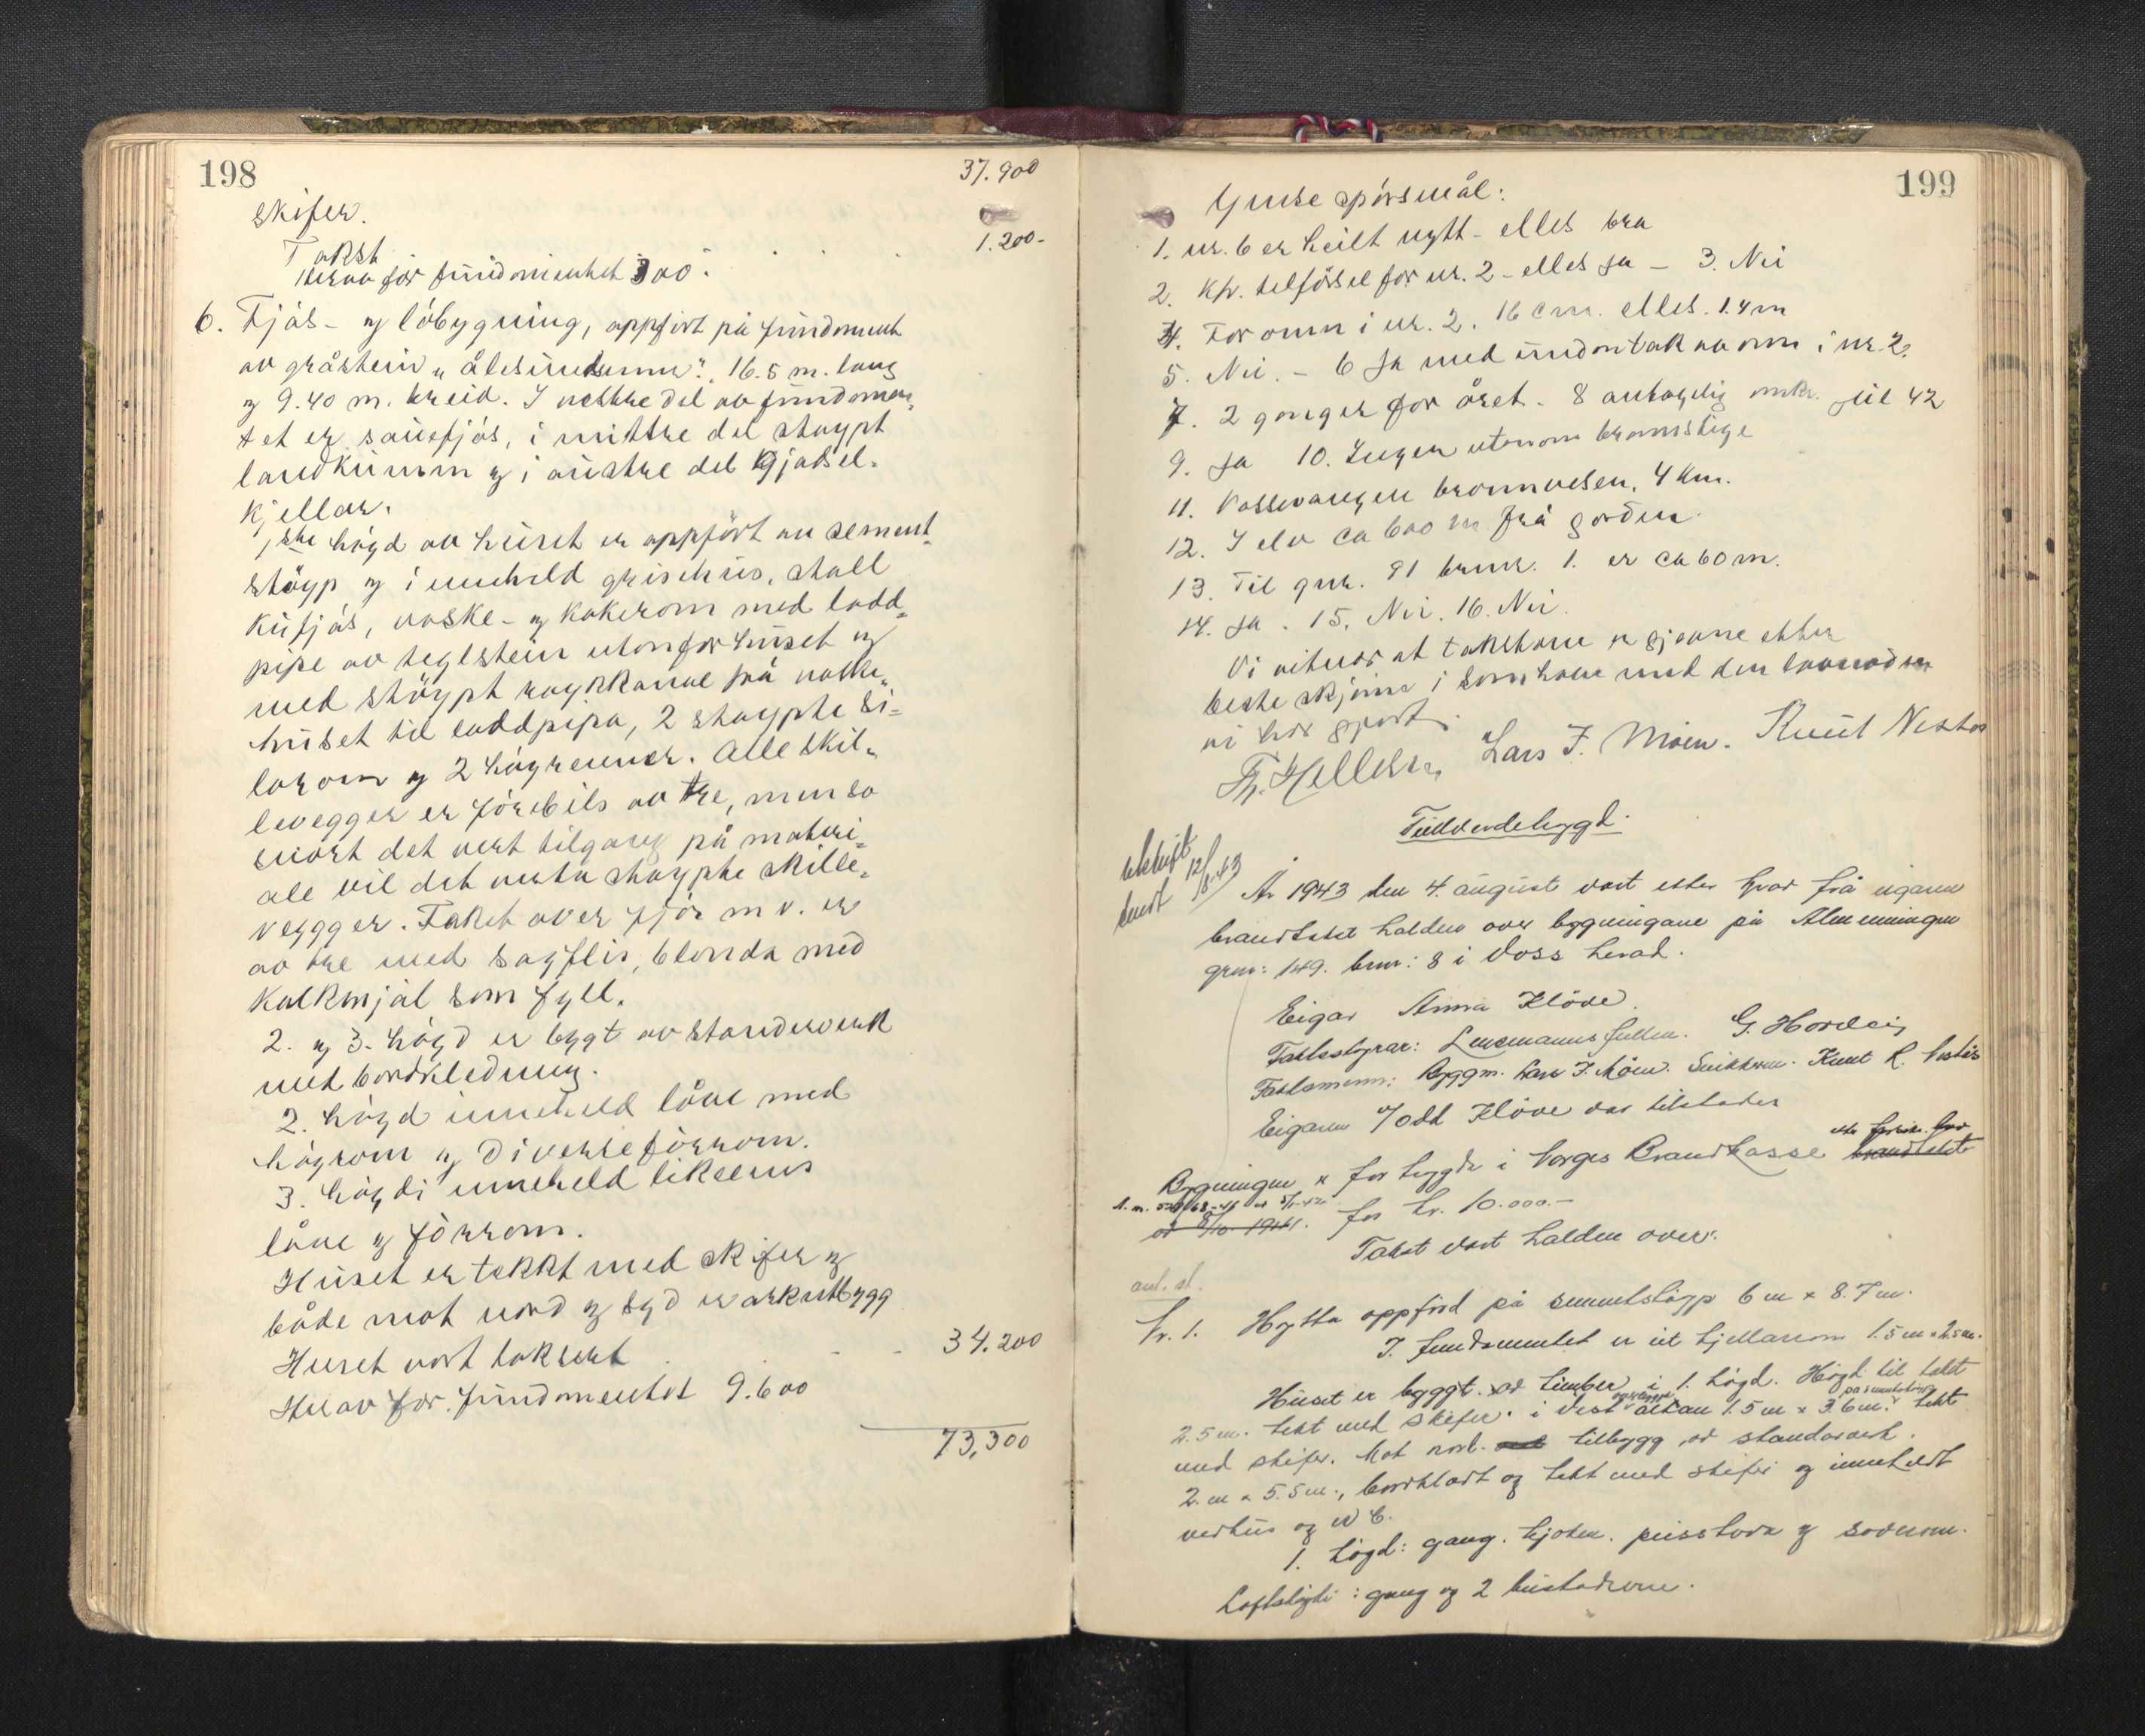 198
37.900
skifer.
Takst 1.200-
Herav for fundomentet 300.
6. Fjås- og löbygning, oppfört på fundoment
av gråstein, 16.5 m. lang
og 9.40 m. breid. I vestre del av fundomen-
tet er sauefjös, i mittre del stöypt
landkum og i austre del gjødsel-
kjellar.
1ste högd av huset er oppfört av sement-
stöyp og inneheld grisehus, stall
kufjös, vaske- og kokerom med lodd-
pipe av teglstein utonfor huset og
med stöypt röykkanal frå vaske-
huset til loddpipa, 2 stöypte si-
lorom og 2 höyrenner. Alle skil-
levegger er förebils av tre, men so
snart det vert tilgang på materi-
ale vil det verta stöypte skille-
vegger. Taket over fjös m.v. er
av tre med sagflis, blonda med
kalkmjöl som fyll.
2. og 3. högd er bygt av standerverk
med bordkledning.
2. högd inneheld låve med
höyrom og diverse förrom.
3. högdi inneheld likeeins
låve og förrom.
Huset er tekkt med skifer og
både mot nord og syd er arkutbygg
Huset vart taksert 34.200
Herav for fundomentet 9.600
73,300
199
Ymse spörsmål:
1. nr. 6 er heilt nytt - elles bra
2. Kfr. tilförsel for nr. 2 - elles ja - 3. Nei
4. For omn i nr. 2. 16 cm. elles. 1.4 m
5. Nei. - 6 Ja med undontak av omn i nr. 2.
7. 2 gonger for året - 8 antagelig omkr. jul 42
9. Ja 10. Ingen utenom brannstige
11. Vossevangen brannvesen, 4 km.
12. I elv ca 600 m frå garden
13. Til gnr. 91 brnr. 1. er ca 60 m.
14. Ja. 15. Nei. 16. Nei.
Vi vitnar at takstane er gjevne etter
beste skjönn i samhöve med den lovnaden
vi har gjort.
Th. Helleson Lars J. Möen. Knut Nestås
Fulldendebygd.
Utskrift
sendt 12/8-43
År 1943 den 4. august vart etter krav frå eigaren
brandtakst halden over bygningane på Almenningen
grnr: 149. bnr: 8 i Voss herad.
Eigar Anna Klöve.
Takststyrar: Lensmannsfullm. G. Hordvig
Takstmenn: Byggm. Lars J. Möen. Snikkerm. Knut R. Nestås
Eigaren v/ Odd Klöve var tilstades
Bygningen er for trygda i Norges Brandkasse
for kr. 10.000.-
Takst vart halden over:
Nr. 1. Hytta oppförd på sementstöyp 6 m x 8.7 m.
I fundamentet er eit kjellarrom 1.5 m x 2.5 m.
Huset er byggt av timber i 1. högd. Högd til takst
2.5 m. tekt med skifer. i Vest altan 1.5 m x 3.6 m. på sementstöyp tekt
med skifer. Mot nord tilbygg av standarverk.
2. m x 5.5 m., bordklædt og tekt med skifer og inneheldt
vedhus og W C.
1. högd: gang. kjöken. peisstova og soverom.
Loftshögdi: gang og 2 bustadrom.